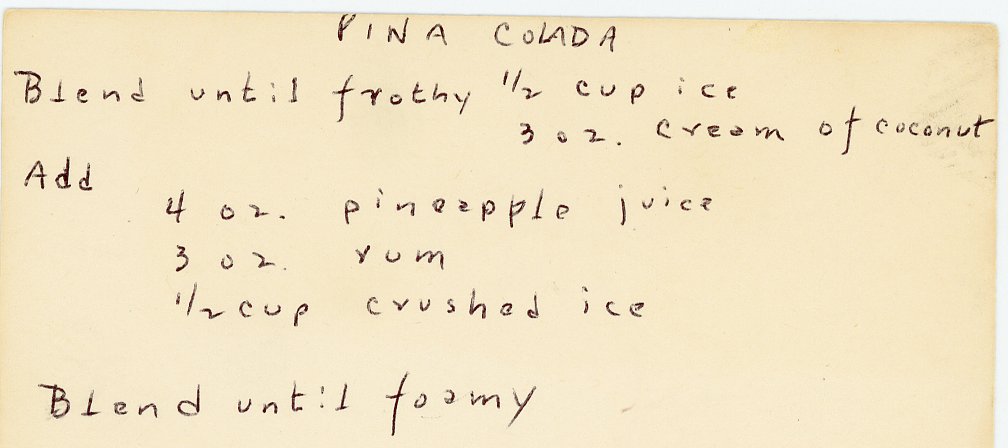 PINA COLADA
Blend until frothy 1/2 cup ice
3 oz. cream of coconut
Add
4 oz. pineapple juice
3 oz. rum
1/2 cup crushed ice
Blend until foamy